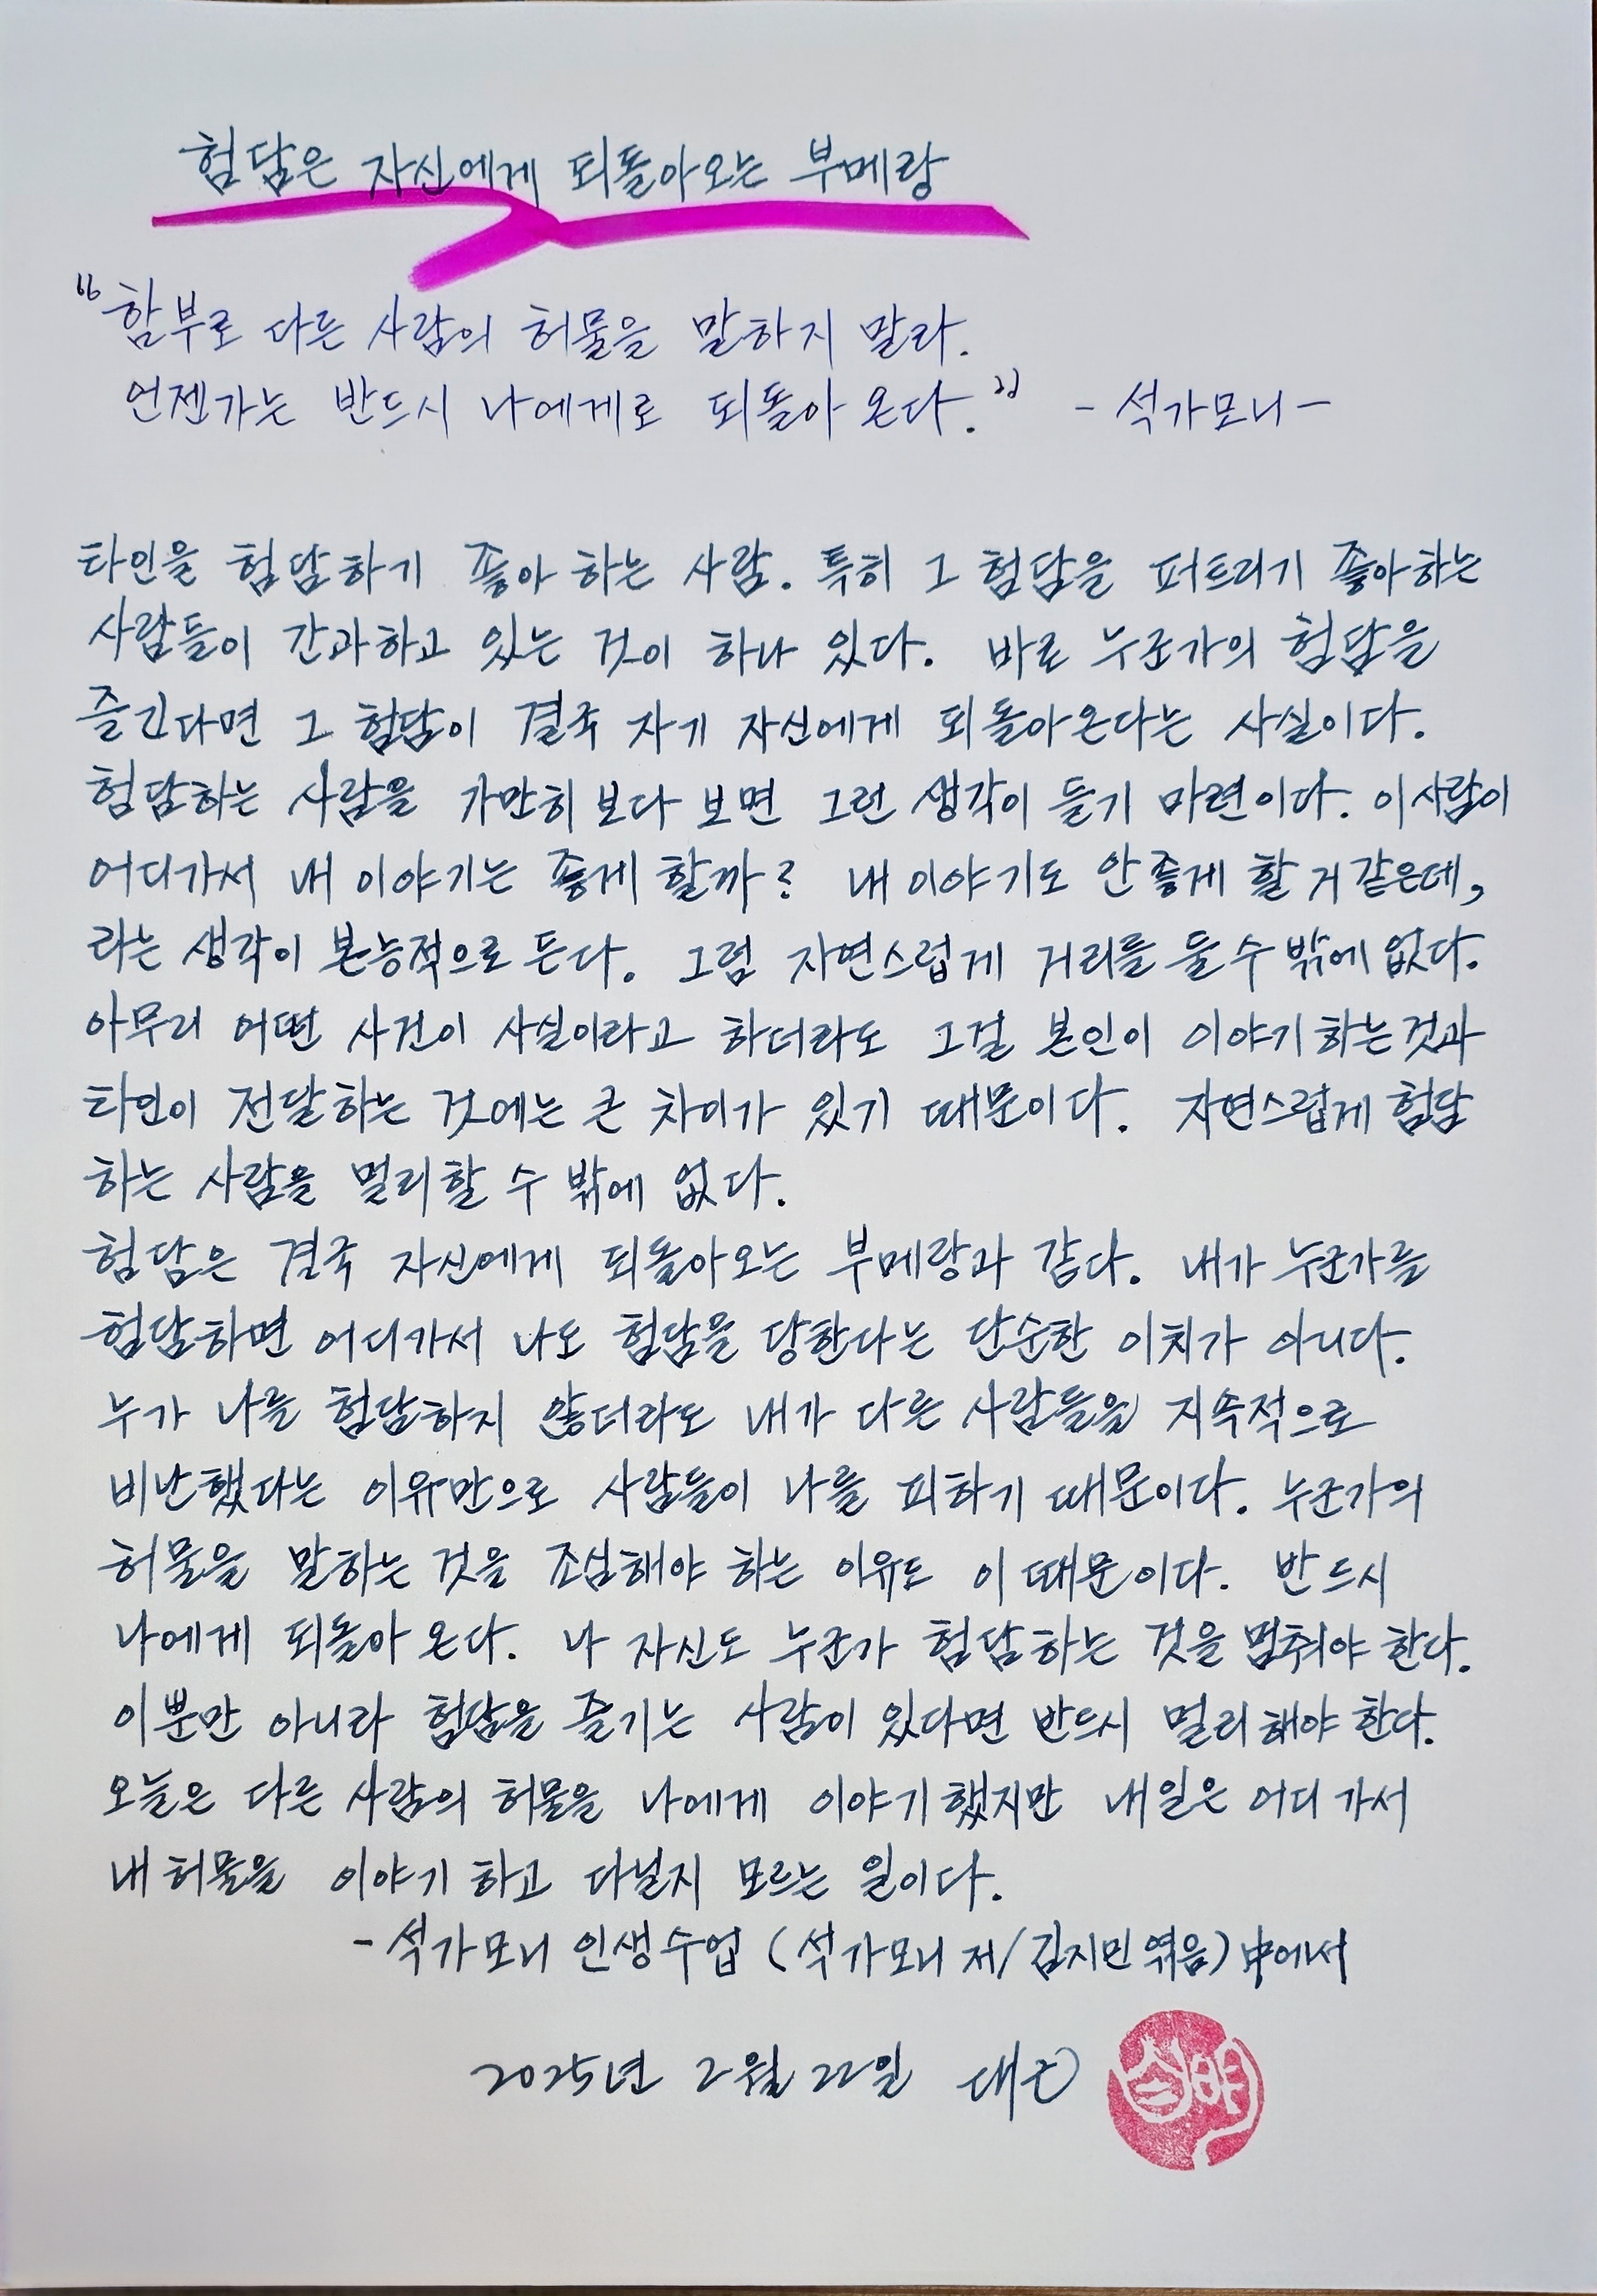 험담은 자신에게 되돌아오는 부메랑
"함부로 다른 사람의 허물을 말하지 말라.
언젠가는 반드시 나에게로 되돌아 온다." - 석가모니 -
타인을 험담하기 좋아 하는 사람. 특히 그 험담을 퍼트리기 좋아하는
사람들이 간과하고 있는 것이 하나 있다. 바로 누군가의 험담을
즐긴다면 그 험담이 결국 자기 자신에게 되돌아온다는 사실이다.
험담하는 사람을 가만히 보다 보면 그런 생각이 들기 마련이다. 이 사람이
어디가서 내 이야기는 좋게 할까? 내 이야기도 안 좋게 할 거 같은데,
라는 생각이 본능적으로 든다. 그럼 자연스럽게 거리를 둘 수 밖에 없다.
아무리 어떤 사건이 사실이라고 하더라도 그걸 본인이 이야기 하는 것과
타인이 전달하는 것에는 큰 차이가 있기 때문이다. 자연스럽게 험담
하는 사람을 멀리할 수 밖에 없다.
험담은 결국 자신에게 되돌아오는 부메랑과 같다. 내가 누군가를
험담하면 어디가서 나도 험담을 당한다는 단순한 이치가 아니다.
누가 나를 험담하지 않더라도 내가 다른 사람들을 지속적으로
비난했다는 이유만으로 사람들이 나를 피하기 때문이다. 누군가의
허물을 말하는 것을 조심해야 하는 이유도 이 때문이다. 반드시
나에게 되돌아 온다. 나 자신도 누군가 험담하는 것을 멈춰야 한다.
이뿐만 아니라 험담을 즐기는 사람이 있다면 반드시 멀리해야 한다.
오늘은 다른 사람의 허물을 나에게 이야기 했지만 내일은 어디 가서
내 허물을 이야기 하고 다닐지 모르는 일이다.
- 석가모니 인생수업 (석가모니 저/김지민 엮음) 中에서
2025년 2월 22일